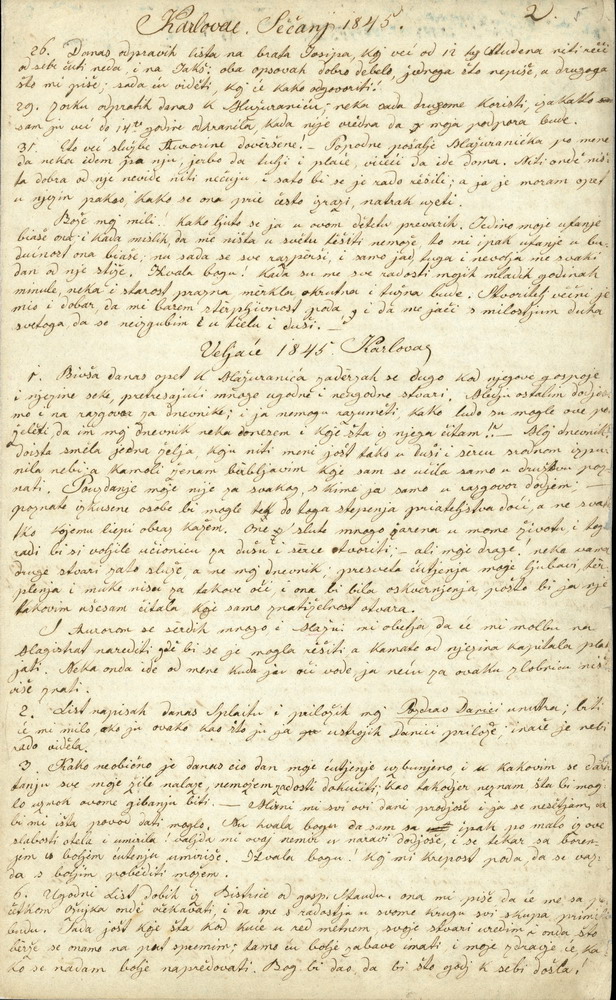 Karlovac. Sěčanj 1845.
2.
26. Danas odpravih lista na brata Josipa, koj već od 12 Studena niti reči
od sebe čuti neda, i na Jakš; oba opsovah dobro debelo, jednoga što nepiše, a drugoga
što mi piše; sada ću viděti, koj će kako odgovoriti!
29. Zorku odpratih danas k Mažuraniću; neka sada drugome koristi, ja kakti
sam ju već do 14te godine odhranila, kada nije vrědna da moja podpora bude.
31. Eto već službe Stvorine doveršene! — Popodne pošalje Mažuranićka po mene
da neka idem po nju, jerbo da tuli i plače, vičući da ide doma. Akti onde niš
ta dobra od nje nevide niti nečuju i zato bi se je rado rěšili; a ja je moram opet
u njezin pakao, kako se ona prie često izrazi, natrak uzeti.
Bože moj mili! kako ljuto se ja u ovom dětetu prevarih. Jedino moje ufanje
biaše ona; i kada mislih, da me ništa u světu těšiti nemože, to mi ipak ufanje u bu-
dućnost ona biaše; no sada se sve razperši, i samo jad, tuga i nevolja me svaki
dan od nje stiže. Hvala bogu! kada su me sve radosti mojih mladih godinah
minule, neka i starost prazna mèrkla okrutna i tužna bude. Stvoritelj věčni je
mio i dobar, da mi barem stèrpljivnost poda, i da me jači s milostjum duha
svetoga, da se neizgubim u tělu i duši. —
Veljače 1845. Karlovac
1. Bivša danas opet k Mažuranića zadèržah se dugo kod njegove gospoje
i njezine seke, pretresajući mnoge ugodne i neugodne stvari. Među ostalim dojde
mo i na razgovor za dnevnike; i ja nemogu razuměti, kako ludo su mogle ove po
želěti, da im moj dnevnik neka donesem i koje šta iz njega čitam!! — Moj dnevnik
doista směla jedna želja, koju niti meni jošt tako u duši i sèrcu srodnom izpu-
nila nebi, a kamoli ženam birbljavim koje sam se učila samo u družtvu poz-
nati. Pouzdanje moje nije za svakog, s kime ja samo u razgovor dojdem; —
poznate izkusene osobe bi mogle tek do toga stepenja priateljstva doći, a ne svat
tko kojemu liepi obraz kažem. One slute mnogo žarena u mome životu, i toga
radi bi si voljile učionicu za dušu i sèrce otvoriti; — ali moje drage! neka vama
druge stvari zato služe a ne moj dnevnik; presveta ćutjenja moje ljubavi, tèr-
plenja i muke nisu za takove oči, i ona bi bila oskvernjena pošto bi ja nje
takovim ušesam čitala koje samo znatiželnost otvara.
S Maurom se sèrdih mnogo i Mažur mi obeća da će mi molbu na
Magistrat narediti gdě bi se je mogla rěšiti a kamate od njezina kapitala pla
ćati. Neka onda ide od mene kuda joj oči vode, ja neću za ovaku zlobnicu niš
više znati.
2. List napisah danas Splaitu i priložih moj Pozdrav Danici unutra; biti
će mi milo, ako ju ovako kao što ju ja ustrojih Danici priloži; inače je nebi
rado viděla.
3. Kako neobično je danas cio dan moje ćutjenje uzbunjeno, i u kakovim se derh
tanju sve moje žile nalaze, nemožem zadosti dokučiti; kao takodjer neznam šta bi mog-
lo uzrok ovome gibanju biti. — Mirni mi svi ovi dani prodjoše i ja se nesětjam, da
bi mi išta povod dati moglo. Nu hvala bogu da sam sa ipak po malo iz ove
slabosti otela i umirila! valjda mi ovaj nemir u naravi dojdoše, i se tekar sa boren-
jem u boljem ćutenju umiriše. Hvala bogu! koj mi krěpost poda, da se vaz-
da s boljim poběditi možem.
6. Ugodni List dobih iz Bistrice od gosp. Staudu. ona mi piše da će me sa po-
četkom Ožujka onde očekavati, i da me s radostju u svome krugu svi skupa primili
budu. Sada jošt koje šta kod kuće u red metnem, svoje stvari uredim i onda što
bèrže se onamo na put spremim; tamo ću bolje zabave imati i moje zdravje će, ka
ko se nadam bolje napredovati. Bog bi dao, da bi što godj k sebi došla!